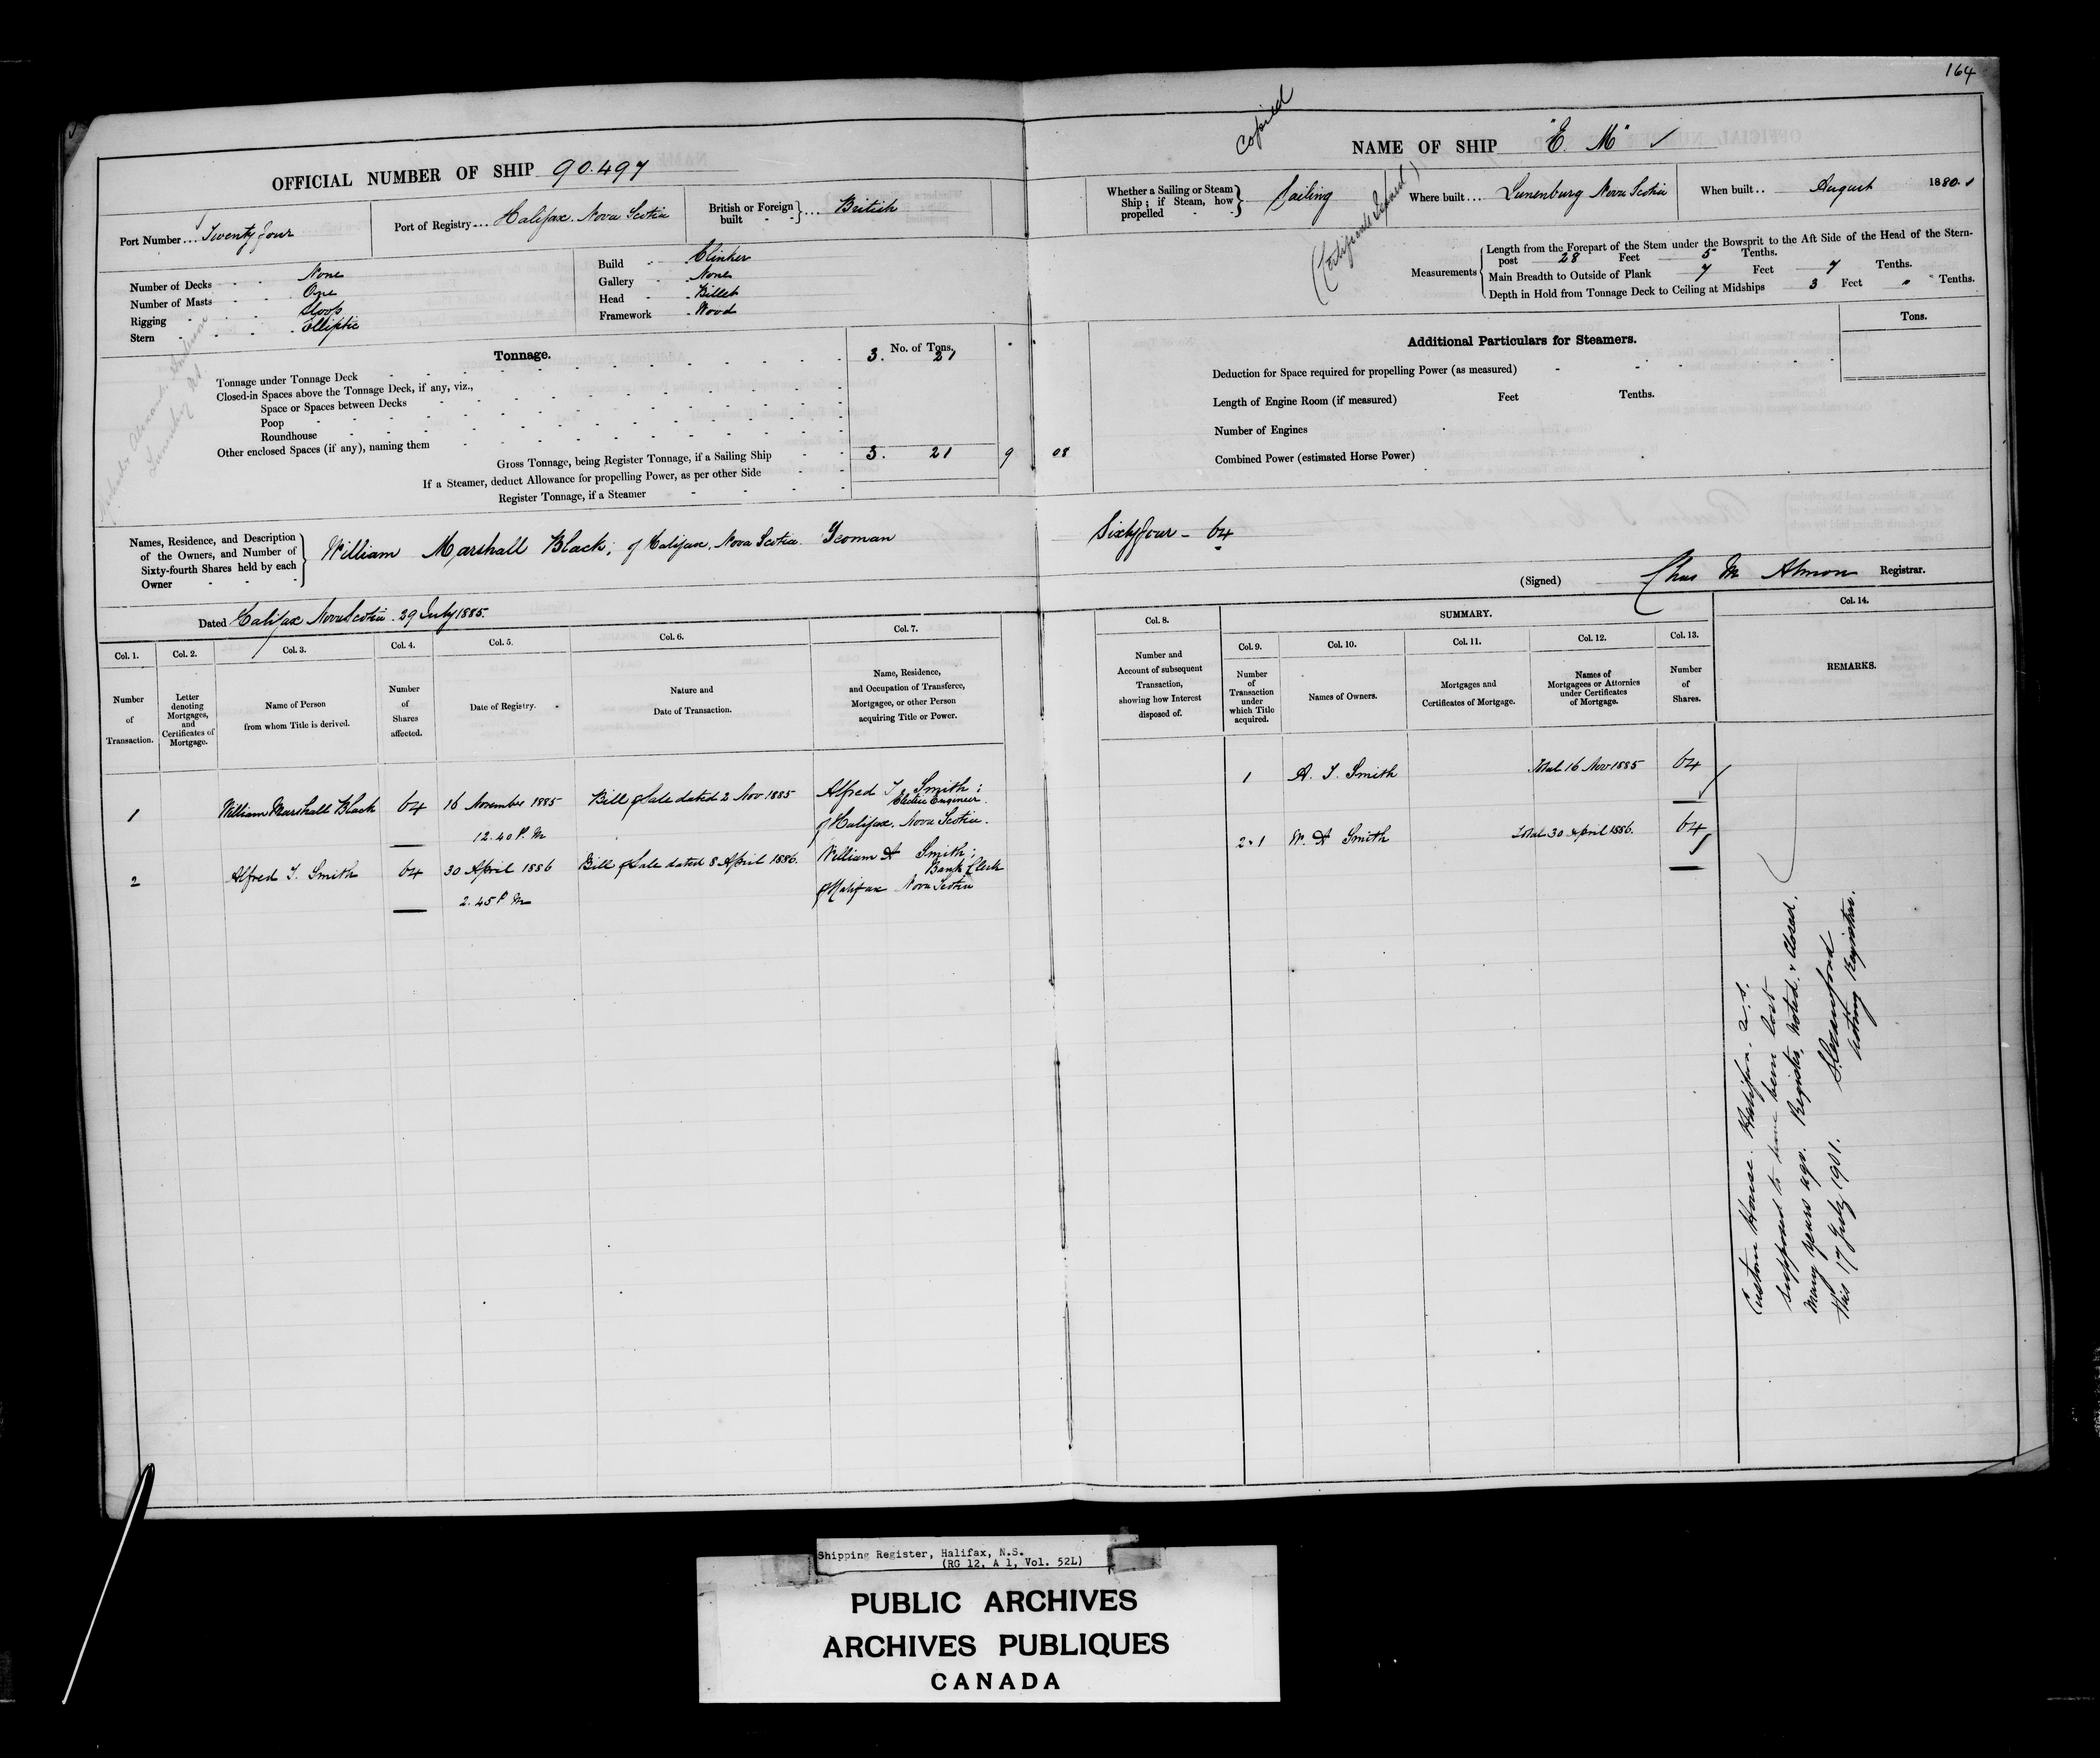 164
Copied
OFFICIAL NUMBER OF SHIP 90.497
Port Number ... Twenty four
Port of Registry ... Halifax. Nova Scotia
British or Foreign built } ... British
Number of Decks - - None
Number of Masts - - One
Rigging - - Sloop
Stern - - Elliptic
Build - - Clinker
Gallery - - None
Head - - Billet
Framework - Wood
Tonnage.
No. of Tons.
Tonnage under Tonnage Deck 3. 21
Closed-in Spaces above the Tonnage Deck, if any, viz.,
Space or Spaces between Decks
Poop
Roundhouse
Other enclosed Spaces (if any), naming them
Gross Tonnage, being Register Tonnage, if a Sailing Ship 3. 21 9 08
If a Steamer, deduct Allowance for propelling Power, as per other Side
Register Tonnage, if a Steamer
Names, Residence, and Description of the Owners, and Number of Sixty-fourth Shares held by each Owner } William Marshall Black; of Halifax, Nova Scotia Yeoman
Dated Halifax Nova Scotia. 29 July 1885.
Col. 1. Col. 2. Col. 3. Col. 4. Col. 5. Col. 6. Col. 7.
Number of Transaction.
Letter denoting Mortgages, and Certificates of Mortgage.
Name of Person from whom Title is derived.
Number of Shares affected.
Date of Registry.
Nature and Date of Transaction.
Name, Residence, and Occupation of Transferee, Mortgagee, or other Person acquiring Title or Power.
1 William Marshall Black 64 16 November 1885 Bill of Sale dated 2 Nov 1885 Alfred T. Smith;
Electric Engineer.
12.40 P.M of Halifax, Nova Scotia.
2 Alfred T. Smith 64 30 April 1886 Bill of Sale dated 8 April 1886. William A Smith;
Bank Clerk
2.45 P M of Halifax Nova Scotia
NAME OF SHIP "E. M"
Whether a Sailing or Steam Ship; if Steam, how propelled } Sailing
(Certificate Issued)
Where built ... Lunenburg Nova Scotia
When built .. August 1880.
Measurements
Length from the Forepart of the Stem under the Bowsprit to the Aft Side of the Head of the Stern-
post 28 Feet 5 Tenths.
Main Breadth to Outside of Plank 7 Feet 7 Tenths.
Depth in Hold from Tonnage Deck to Ceiling at Midships 3 Feet " Tenths.
Additional Particulars for Steamers.
Tons.
Deduction for Space required for propelling Power (as measured)
Length of Engine Room (if measured) Feet Tenths.
Number of Engines
Combined Power (estimated Horse Power)
Sixty four - 64
(Signed) Chas M Almon Registrar.
Col. 8.
SUMMARY.
Col. 14.
Col. 9. Col. 10. Col. 11. Col. 12. Col. 13.
Number and Account of subsequent Transaction, showing how Interest disposed of.
Number of Transaction under which Title acquired.
Names of Owners.
Mortgages and Certificates of Mortgage.
Names of Mortgagees or Attornies under Certificates of Mortgage.
Number of Shares.
REMARKS.
1 A. T. Smith Total 16 Nov 1885 64
2.1 W. A Smith Total 30 April 1886. 64
Custom House. Halifax. N.S.
Supposed to have been lost
many years ago. Register noted & Closed.
this 17 July 1901.
Acting Registrar.
Shipping Register, Halifax, N.S.
(RG 12, A 1, Vol. 52L)
PUBLIC ARCHIVES
ARCHIVES PUBLIQUES
CANADA